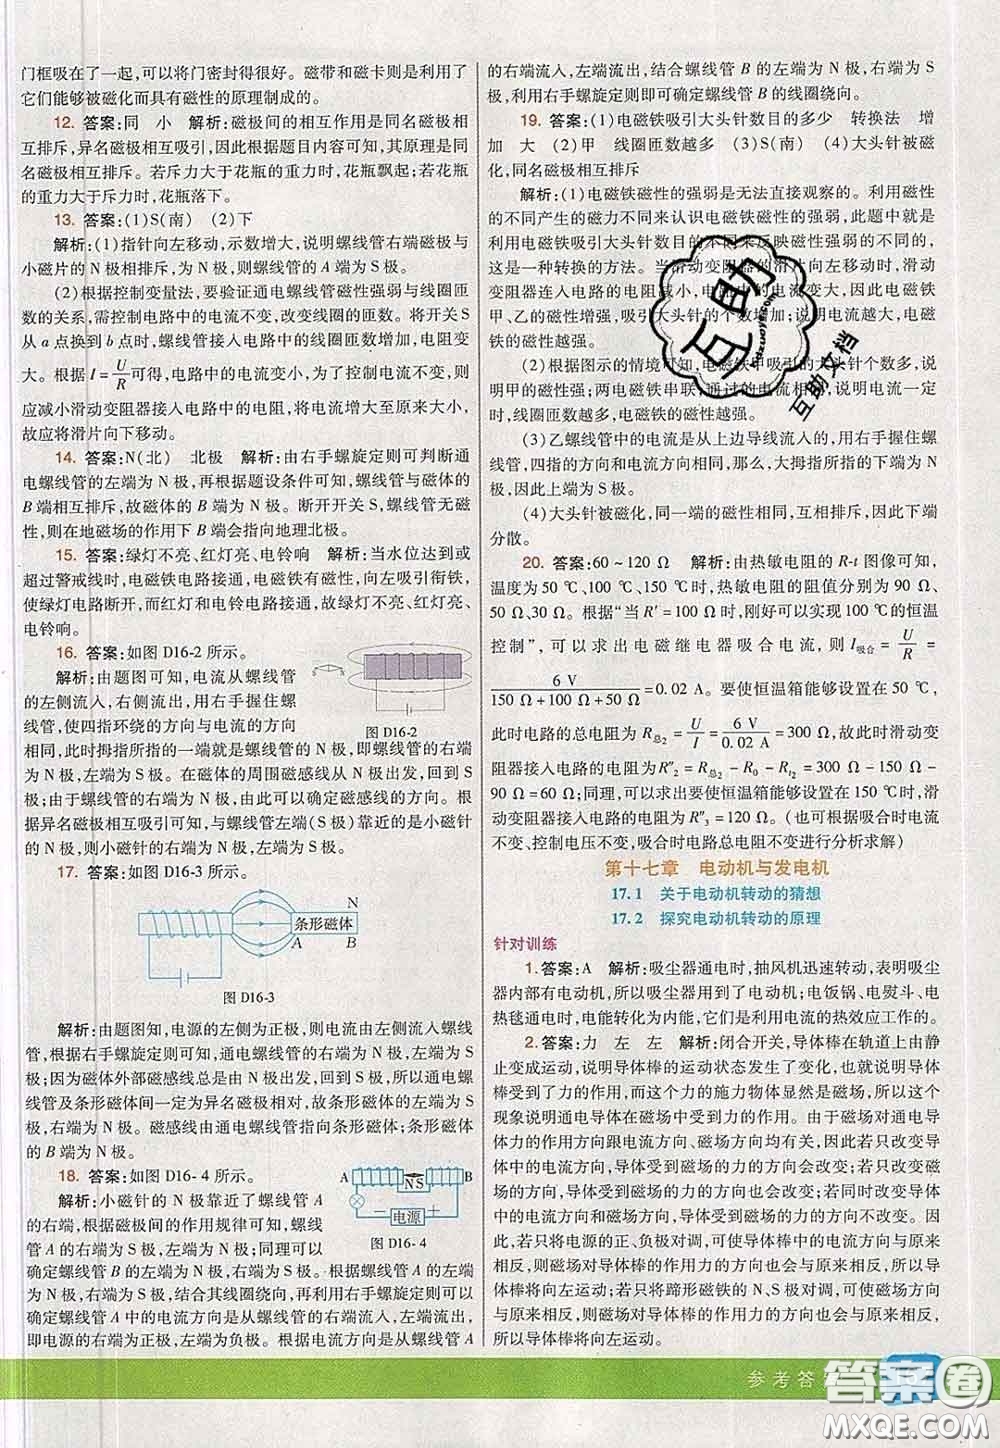 门框吸在了一起,可以将门密封得很好。磁带和磁卡则是利用了
它们能够被磁化而具有磁性的原理制成的。
12. 答案:同 小 解析:磁极间的相互作用是同名磁极相
互排斥,异名磁极相互吸引,因此根据题目内容可知,其原理是同
名磁极相互排斥。若斥力大于花瓶的重力时,花瓶飘起;若花瓶
的重力大于斥力时,花瓶落下。
13. 答案:(1)S(南) (2)下
解析:(1)指针向左移动,示数增大,说明螺线管右端磁极与
小磁片的 N 极相排斥,为 N 极,则螺线管的 A 端为 S 极。
(2)根据控制变量法,要验证通电螺线管磁性强弱与线圈匝
数的关系,需控制电路中的电流不变,改变线圈的匝数。将开关 S
从 a 点换到 b 点时,螺线管接入电路中的线圈匝数增加,电阻变
大。根据 I = U/R 可得,电路中的电流变小,为了控制电流不变,则
应减小滑动变阻器接入电路中的电阻,将电流增大至原来大小,
故应将滑片向下移动。
14. 答案:N(北) 北极 解析:由右手螺旋定则可判断通
电螺线管的左端为 N 极,再根据题设条件可知,螺线管与磁体的
B 端相互排斥,故磁体的 B 端为 N 极。断开开关 S,螺线管无磁
性,则在地磁场的作用下 B 端会指向地理北极。
15. 答案:绿灯不亮、红灯亮、电铃响 解析:当水位达到或
超过警戒线时,电磁铁电路接通,电磁铁有磁性,向左吸引衔铁,
使绿灯电路断开,而红灯和电铃电路接通,故绿灯不亮、红灯亮、
电铃响。
16. 答案:如图 D16-2 所示。
解析:由题图可知,电流从螺线管
的左侧流入,右侧流出,用右手握住螺
线管,使四指环绕的方向与电流的方向
图 D16-2
相同,此时拇指所指的一端就是螺线管的 N 极,即螺线管的右端
为 N 极,左端为 S 极。在磁体的周围磁感线从 N 极出发,回到 S
极;由于螺线管的右端为 N 极,由此可以确定磁感线的方向。根
据异名磁极相互吸引可知,与螺线管左端(S 极)靠近的是小磁针
的 N 极,则小磁针的右端为 N 极,左端为 S 极。
17. 答案:如图 D16-3 所示。
N
条形磁体
A B
图 D16-3
解析:由题图知,电源的左侧为正极,则电流由左侧流入螺线
管,根据右手螺旋定则可知,通电螺线管的右端为 N 极,左端为 S
极。因为磁体外部磁感线总是由 N 极出发,回到 S 极,所以通电
螺线管及条形磁体间一定为异名磁极相对,故条形磁体的 A 端为
S 极,右端为 N 极。磁感线由通电螺线管指向条形磁体;条形磁体
的 B 端为 N 极。
18. 答案:如图 D16-4 所示。
A N S B
电源
图 D16-4
解析:小磁针的 N 极靠近了螺线管 A
的右端,根据磁极间的作用规律可知,螺线
管 A 的右端为 S 极,左端为 N 极,同理可以
确定螺线管 B 的左端为 N 极,右端为 S 极。再利用右手定则可以
确定螺线管 A 中的电流方向是从螺线管的右端流入,左端流出,
即电源的右端为正极,左端为负极。根据电流方向是从螺线管 A
的右端流入,左端流出,结合螺线管 B 的左端为 N 极,右端为 S
极,利用右手螺旋定则即可确定螺线管 B 的线圈绕向。
19. 答案:(1)电磁铁吸引大头针数目的多少 转换法 增
加 大 (2)甲 线圈匝数越多 (3)S(南) (4)大头针被磁
化,同名磁极相互排斥
解析:(1)电磁铁磁性的强弱是无法直接观察的。利用磁性
的不同产生的磁力不同来认识电磁铁磁性的强弱,此题中就是
利用电磁铁吸引大头针数目的不同来反映磁性强弱的不同的,
这是一种转换的方法。当滑动变阻器的滑片向左移动时,滑动
变阻器连入电路的电阻减小,电路中的电流变大,因此电磁铁
甲、乙的磁性增强,吸引大头针的个数增加;说明电流越大,电
磁铁的磁性越强。
(2)根据图示的情境可知,电磁铁甲吸引的大头针个数多,
说明甲的磁性强;两电磁铁串联,通过的电流相同,说明电流一定
时,线圈匝数越多,电磁铁的磁性越强。
(3)乙螺线管中的电流是从上边导线流入的,用右手握住螺
线管,四指的方向和电流方向相同,那么,大拇指所指的下端为 N
极,因此上端为 S 极。
(4)大头针被磁化,同一端的磁性相同,互相排斥,因此下端
分散。
20. 答案:60~120 Ω 解析:由热敏电阻的 R-t 图像可知,
温度为 50 ℃、100 ℃、150 ℃时,热敏电阻的阻值分别为 90 Ω、
50 Ω、30 Ω。根据“当 R′=100 Ω 时,刚好可以实现 100 ℃的恒温
控制”,可以求出电磁继电器吸合电流,则 I吸合 = U/R =
6 V/(150 Ω+100 Ω+50 Ω) = 0.02 A。要使恒温箱能够设置在 50 ℃,
此时电路的总电阻为 R总2 = U/I = 6 V/0.02 A = 300 Ω,此时滑动变
阻器接入电路的电阻为R″2 = R总2 − R0 − Rt2 = 300 Ω − 150 Ω −
90 Ω=60 Ω;同理,可以求出要使恒温箱能够设置在 150 ℃时,滑
动变阻器接入电路的电阻 R″3 =120 Ω。(也可根据吸合时电流
不变、控制电压不变,吸合时电路总电阻不变进行分析求解)
第十七章 电动机与发电机
17.1 关于电动机转动的猜想
17.2 探究电动机转动的原理
针对训练
1. 答案:A 解析:吸尘器通电时,抽风机迅速转动,表明吸尘
器内部有电动机,所以吸尘器用到了电动机;电饭锅、电熨斗、电
热毯通电时,电能转化为内能,它们是利用电流的热效应工作的。
2. 答案:力 左 左 解析:闭合开关,导体棒在轨道上由静
止变成运动,说明导体棒的运动状态发生了变化,也就是说导体
棒受到了力的作用,而这个力的施力物体显然是磁体,所以这个
现象说明通电导体在磁场中受到力的作用。由于磁场对通电导
体力的作用方向跟电流方向、磁场方向均有关,因此若只改变导
体中的电流方向,则导体受到磁场的力的方向会改变;若只改变
磁场的方向,则导体受到磁场的力的方向也会改变;若同时改变
导体中的电流方向和磁场方向,则导体受力的方向不改变。因
此,若只将电源的正、负极对调,可使导体棒中的电流方向与原来
相反,则磁场对导体棒的作用力的方向与原来相反,所以导体棒
会向左运动;同理,若只将蹄形磁铁的 N、S 极对调,可使磁场方向
与原来相反,则磁场对导体棒的作用力的方向与原来相反,
所以导体棒将向左运动。
参考答
答案圈
MXQE.COM
互助
互助文档